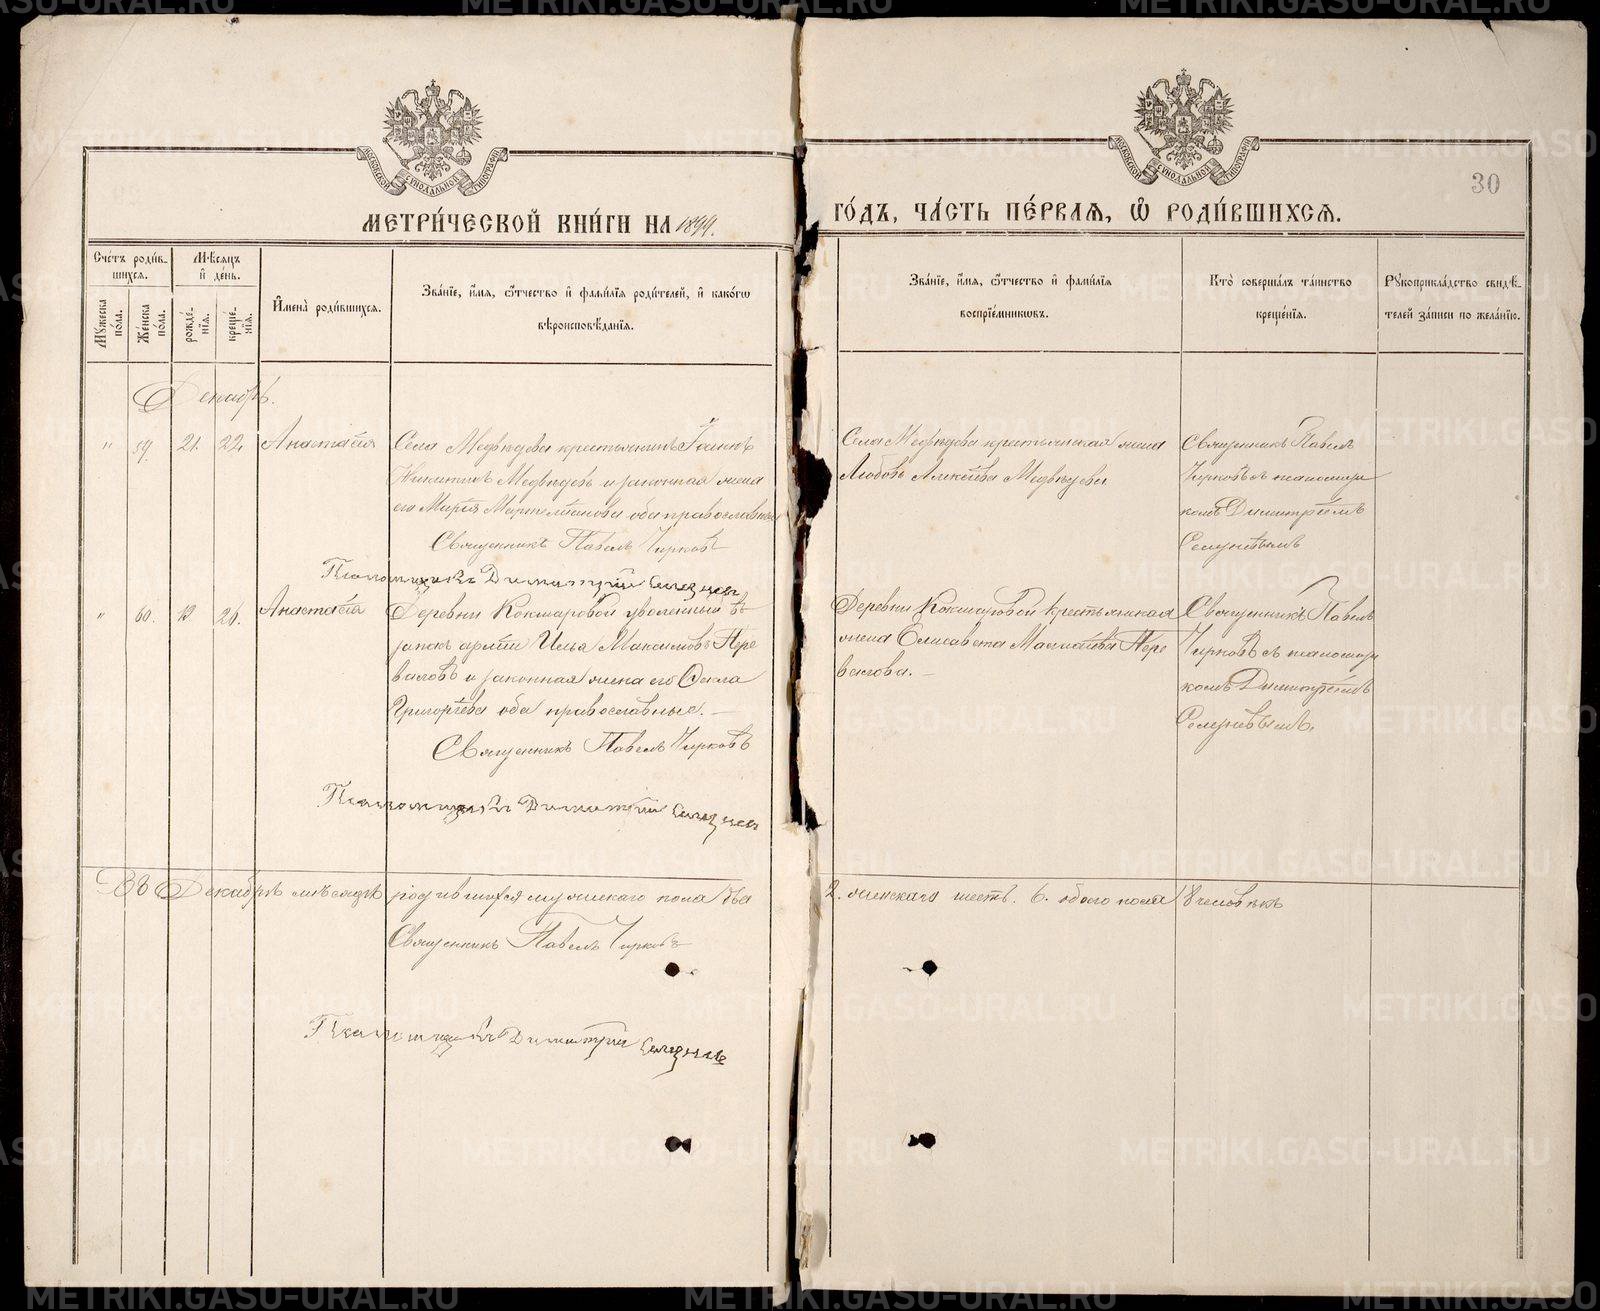 МЕТРИ́ЧЕСКОЙ КНИ́ГИ НА 1899.
ГО́ДЪ, ЧА́СТЬ ПЕ́РВАЯ, Ѡ РОДИ́ВШИХСЯ.
30
Сче́тъ роди́вшихся.
Му́жеска по́ла.
Же́нска по́ла.
Мѣ́сяцъ и де́нь.
рожде́нїя.
креще́нїя.
И҆мена̀ роди́вшихся.
Зва́нїе, и҆́мя, ѻ҆́тчество и҆ фами́лїя роди́телей, и҆ како́гѡ
вѣроисповѣ́данїя.
Зва́нїе, и҆́мя, ѻ҆́тчество и҆ фами́лїя
воспрїе́мниковъ.
Кто̀ соверша́лъ та́инство
креще́нїя.
Рукоприкла́дство свидѣ́-
телей за́писи по жела́нїю.
Декабрь.
" 59. 21. 22. Анастасія
Села Медвѣдева крестьянинъ
Никитинъ Медвѣдевъ и законная жена
его Марія оба православные
Священникъ Павелъ Чирковъ
Псаломщикъ Димитрій Селезневъ
Села Медвѣдева крестьянская жена
Любовь Алексѣева Медвѣдева
Священникъ Павелъ
Чирковъ съ псаломщи
комъ Димитріемъ
Селезневымъ
" 60. 26. Анастасія
Деревни Кокшаровой уволенный въ
запасъ арміи Илья Максимовъ Пере
валовъ и законная жена его Ѳекла
Григорьева оба православные. —
Священникъ Павелъ Чирковъ
Псаломщикъ Димитрій Селезневъ
Деревни Кокшаровой крестьянская
жена Елисавета Пере
валова. —
Священникъ Павелъ
Чирковъ съ псаломщи
комъ Димитріемъ
Селезневымъ.
Въ Декабрѣ мѣсяцѣ родившихся мужскаго пола два 2. женскаго шесть. 6. обоего пола 8 человѣкъ
Священникъ Павелъ Чирковъ
Псаломщикъ Димитрій Селезневъ
METRIKI.GASO-URAL.RU